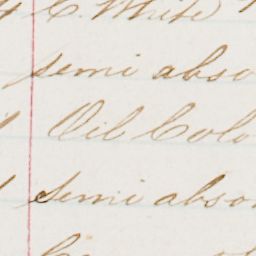 C. White
semi abso
Oil Colo
Semi abso